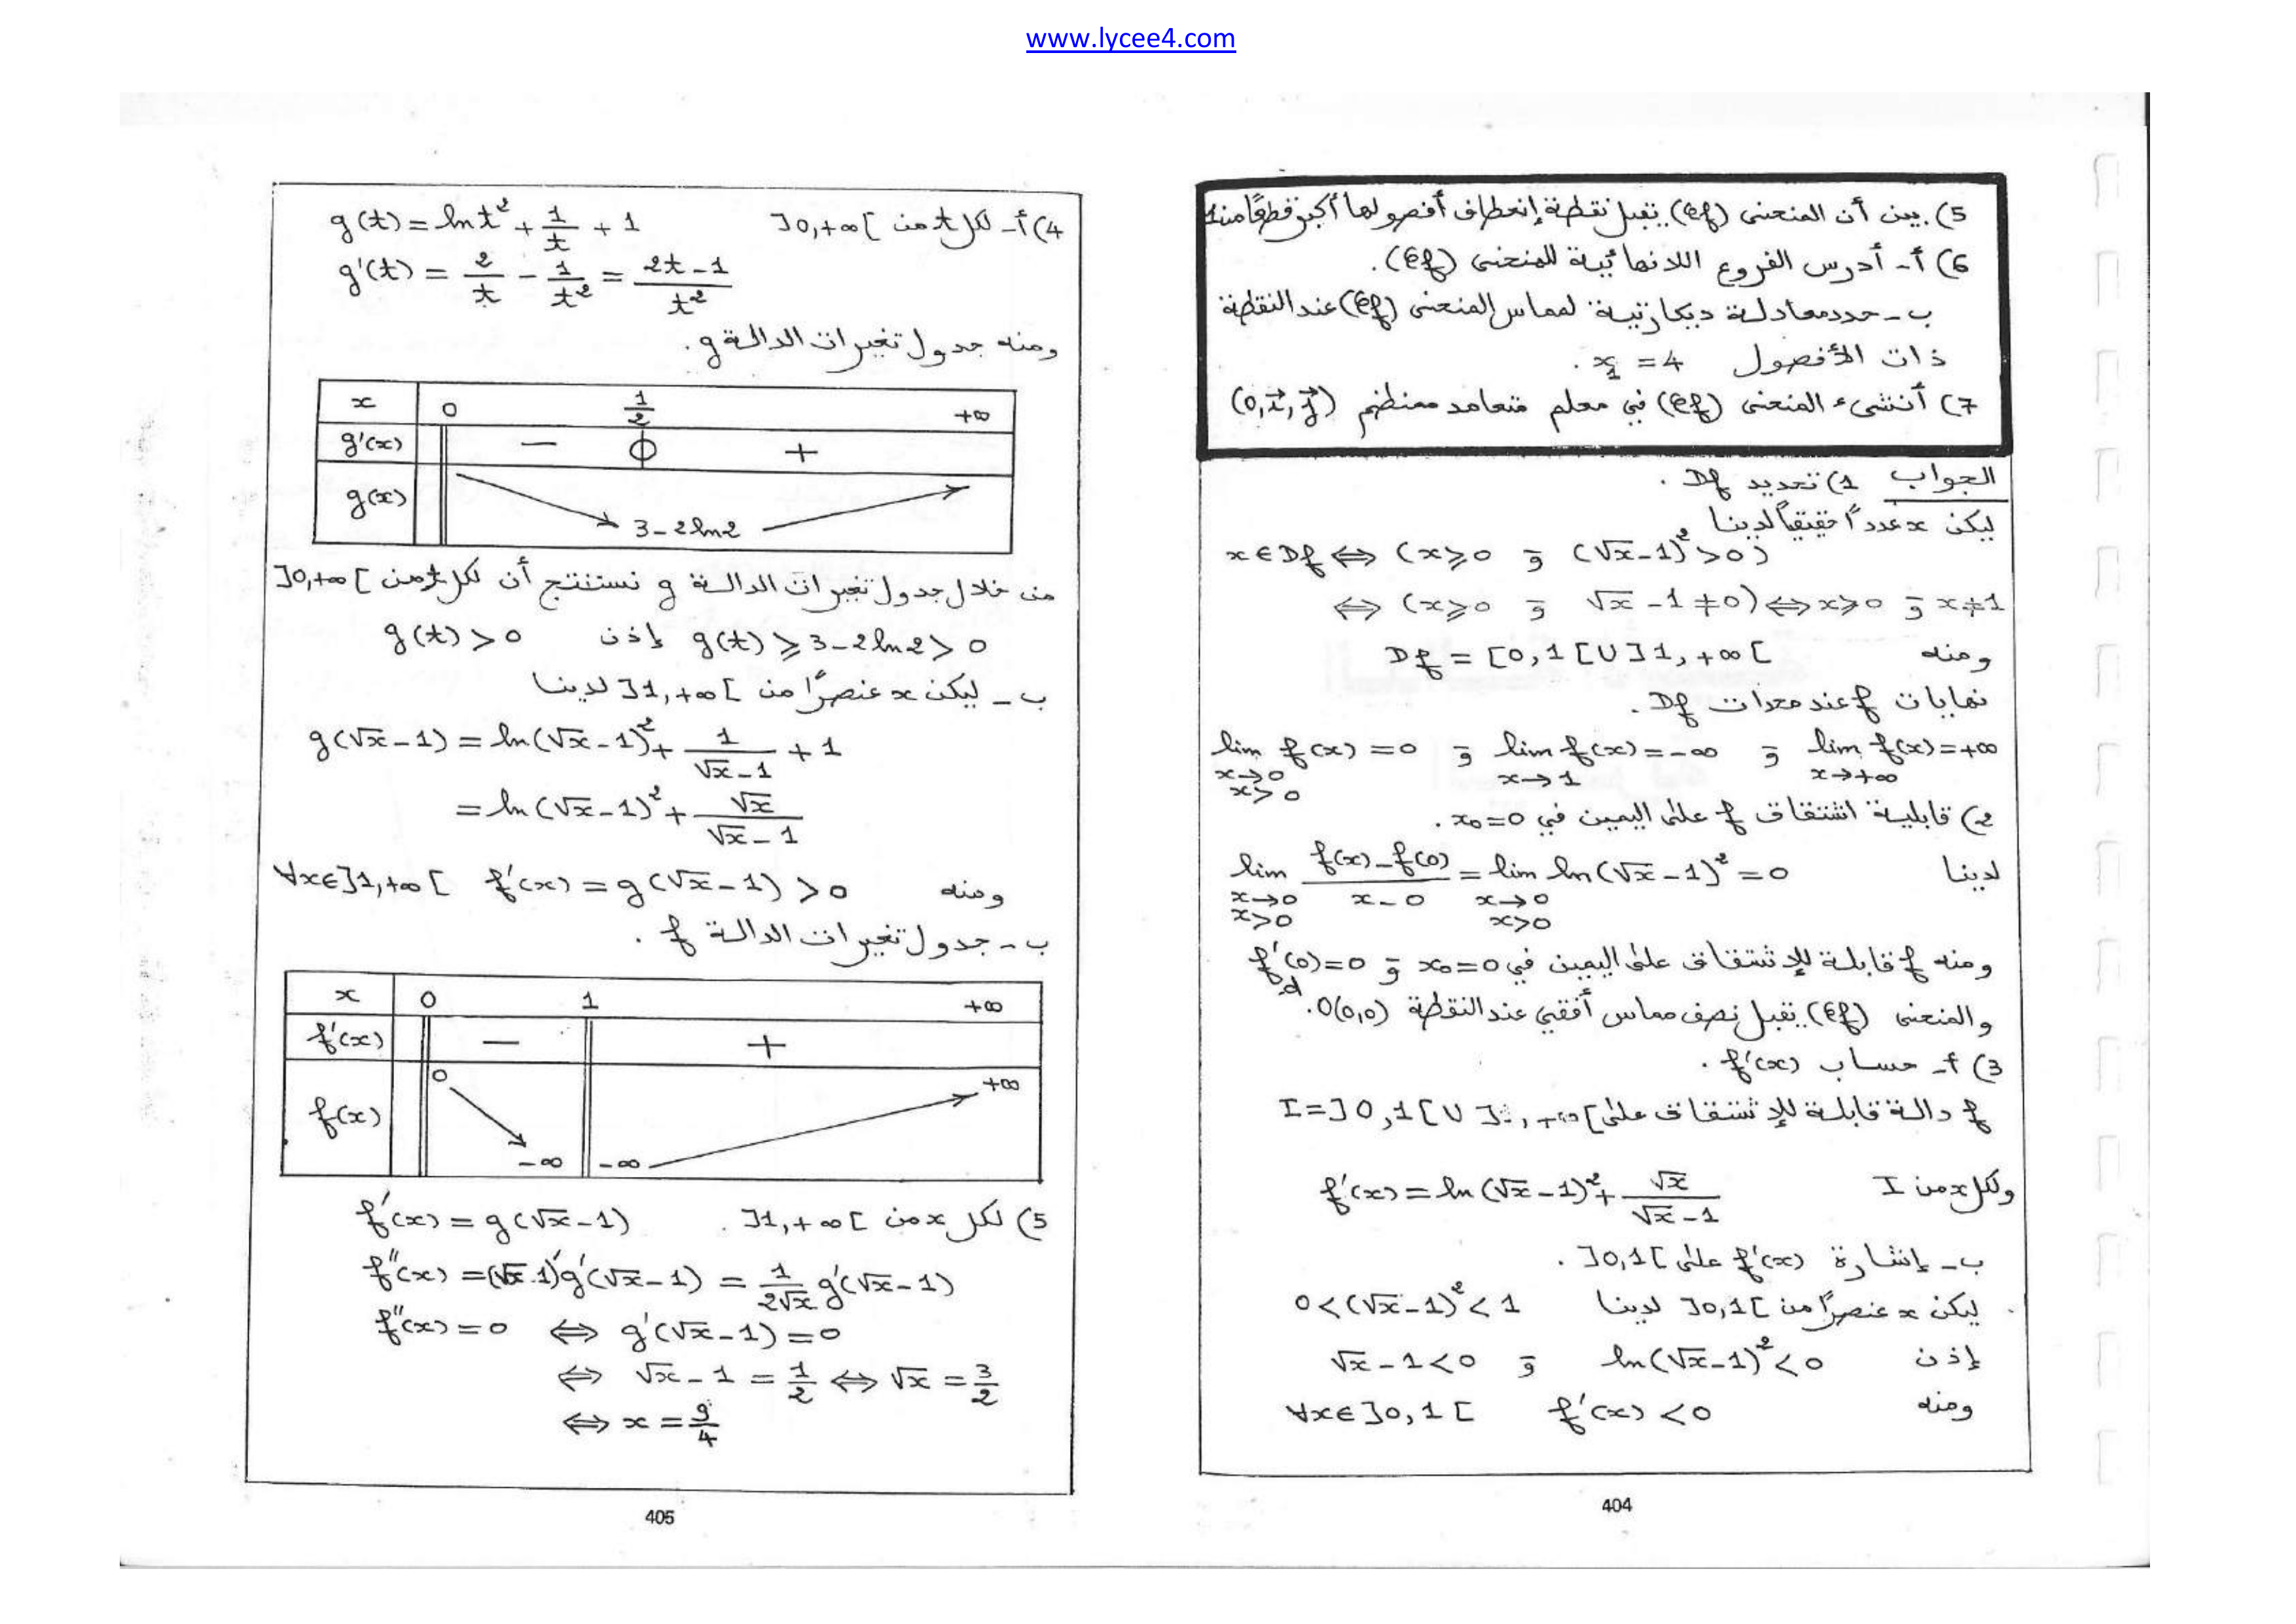 www.lycee4.com
5). بين أن المنحنى (𝒞f) يقبل نقطة إنعطاف أفصولها أكبر قطعًا من 1
6) أ- أدرس الفروع اللانهائية للمنحنى (𝒞f).
ب- حدد معادلة ديكارتية لمماس المنحنى (𝒞f) عند النقطة
ذات الأفصول x₁ = 4 .
7) أنشئ المنحنى (𝒞f) في معلم متعامد ممنظم (0,i⃗,j⃗)
الجواب 1) تحديد Df .
ليكن x عددًا حقيقيًا لدينا
x ∈ Df ⇔ (x ⩾ 0 و (√x - 1)² > 0)
⇔ (x ⩾ 0 و √x - 1 ≠ 0) ⇔ x ⩾ 0 و x ≠ 1
ومنه Df = [0,1[ U ]1,+∞[
نهايات f عند محدات Df .
lim f(x) = 0 و lim f(x) = -∞ و lim f(x) = +∞
x→0 x→1 x→+∞
x>0
2) قابلية اشتقاق f على اليمين في x₀=0 .
لدينا lim (f(x) - f(0))/(x - 0) = lim ln(√x - 1)² = 0
x→0 x→0
x>0 x>0
ومنه f قابلة للإشتقاق على اليمين في x₀=0 و f'd(0)=0
والمنحنى (𝒞f) يقبل نصف مماس أفقي عند النقطة O(0,0).
3) أ- حساب f'(x) .
f دالة قابلة للإشتقاق على I = ]0,1[ U ]1,+∞[
ولكل x من I f'(x) = ln(√x - 1)² + √x/(√x - 1)
ب- إشارة f'(x) على ]0,1[ .
ليكن x عنصرًا من ]0,1[ لدينا 0 < (√x - 1)² < 1
إذن ln(√x - 1)² < 0 و √x - 1 < 0
ومنه f'(x) < 0 ∀x∈]0,1[
404
4) أ- لكل t من ]0,+∞[ g(t) = ln t² + 1/t + 1
g'(t) = 2/t - 1/t² = (2t - 1)/t²
ومنه جدول تغيرات الدالة g .
x 0 1/2 +∞
g'(x) - 0 +
g(x) 3 - 2ln2
من خلال جدول تغيرات الدالة g نستنتج أن لكل t من ]0,+∞[
g(t) ⩾ 3 - 2ln2 > 0 إذن g(t) > 0
ب- ليكن x عنصرًا من ]1,+∞[ لدينا
g(√x - 1) = ln(√x - 1)² + 1/(√x - 1) + 1
= ln(√x - 1)² + √x/(√x - 1)
ومنه f'(x) = g(√x - 1) > 0 ∀x∈]1,+∞[
ب- جدول تغيرات الدالة f .
x 0 1 +∞
f'(x) - +
f(x) 0 -∞ -∞ +∞
5) لكل x من ]1,+∞[ . f'(x) = g(√x - 1)
f''(x) = (√x - 1)'g'(√x - 1) = 1/(2√x) g'(√x - 1)
f''(x) = 0 ⇔ g'(√x - 1) = 0
⇔ √x - 1 = 1/2 ⇔ √x = 3/2
⇔ x = 9/4
405